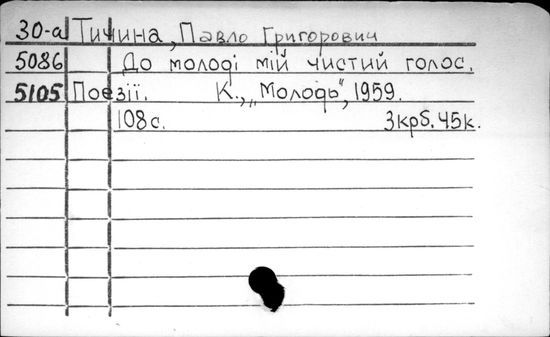 30-а Тичина, Павло Григорович
5086 До молоді мій чистий голос.
5105 Поезії. К., „Молодь", 1959.
108 с. 3 крб. 45 к.